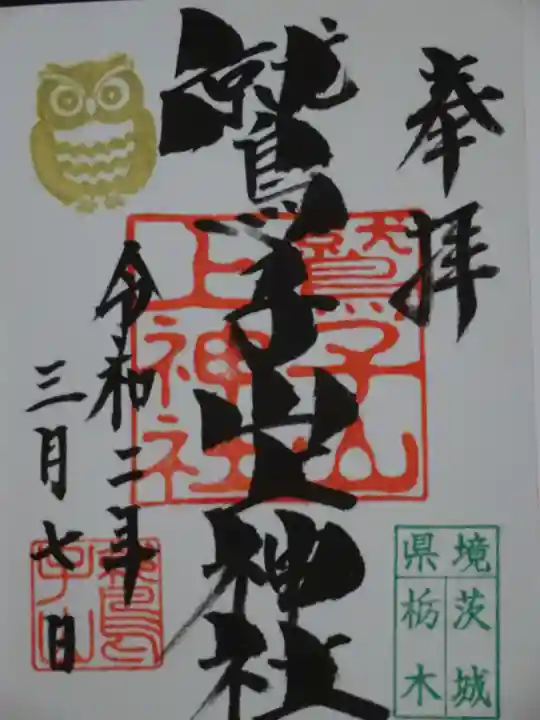 奉拝
鷲子山上神社
鷲子山
上神社
令和二年
三月七日
鷲子山
境 茨城
県 栃木